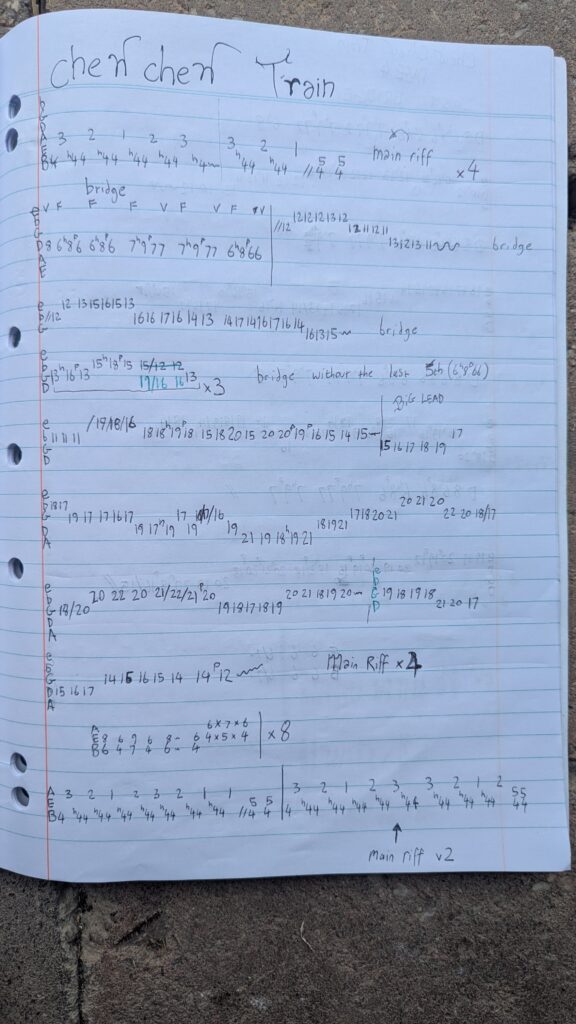 Train
e
B
G
D
A 3 2 1 2 3 3 2 1 5 5
E
B4 h44 h44 h44 h44 h4 h44 h44 //4 4 main riff x4
bridge
e V F F F V F V F V
b //12 12 12 12 13 12 12 11 12 11
G 13 12 13 11 bridge
D 8 6h8p6 6h8p6 7h9p77 7h9p77 6h8p66
A
E
e 12 13 15 16 15 13
b//12 16 16 17 16 14 13 14 17 14 16 17 16 14
G 16 13 15 bridge
e
b 15h18p15 15/12 12
G13h16p13 19/16 16 13 x3 bridge without the last 5th (6h8p66)
D
BiG LEAD
e /19/18/16 17
b 11 11 11 18 18h19p18 15 18 20 15 20 20p19p16 15 14 15 15 16 17 18 19
G
D
e 20 21 20
b 18 17 17 18 20 21 22 20 18/17
G 19 17 17 16 17 17 18 19 21
D 19 17h19 19 19 21 19 18h19 21
A
e 20 22 20 21/22/21p20 e
b 20 21 18 19 20 b
G 18/20 19 18 17 18 19 G 19 18 19 18
D D 21 20 17
A
e
b
G 14 15 16 15 14 14p12 Main Riff x4
D 15 16 17
A
A 6 x 7 x 6
E 8 6 9 6 8 - 6 4 x 5 x 4 x8
B 6 4 7 4 6 - 4
A 3 2 1 2 3 2 1 1 5 5 3 2 1 2 3 3 2 1 2 55
E
B4 h44 h44 h44 h44 h44 h44 h44 h44 //4 4 4 h44 h44 h44 h44 h44 h44 h44 h44 44
main riff v2